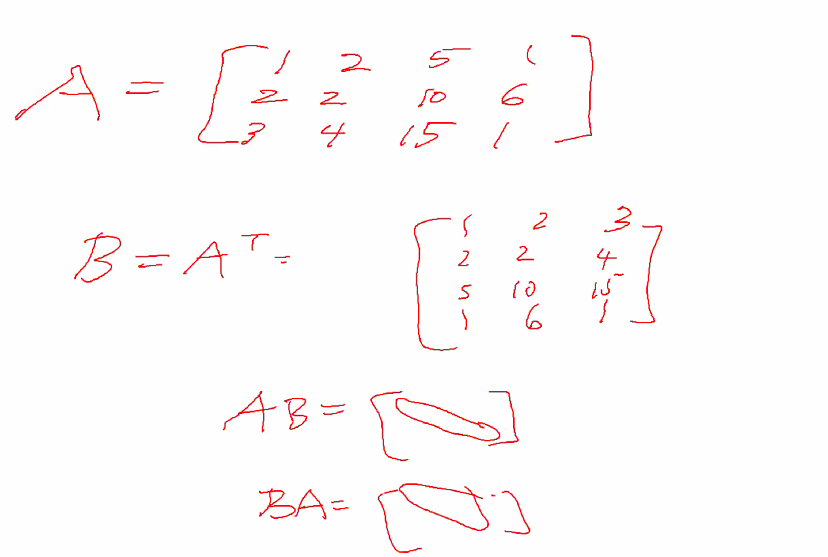 A = [ 1 2 5 1
2 2 10 6
3 4 15 1 ]
B = A^T = [ 1 2 3
2 2 4
5 10 15
1 6 1 ]
AB = [ ]
BA = [ ]